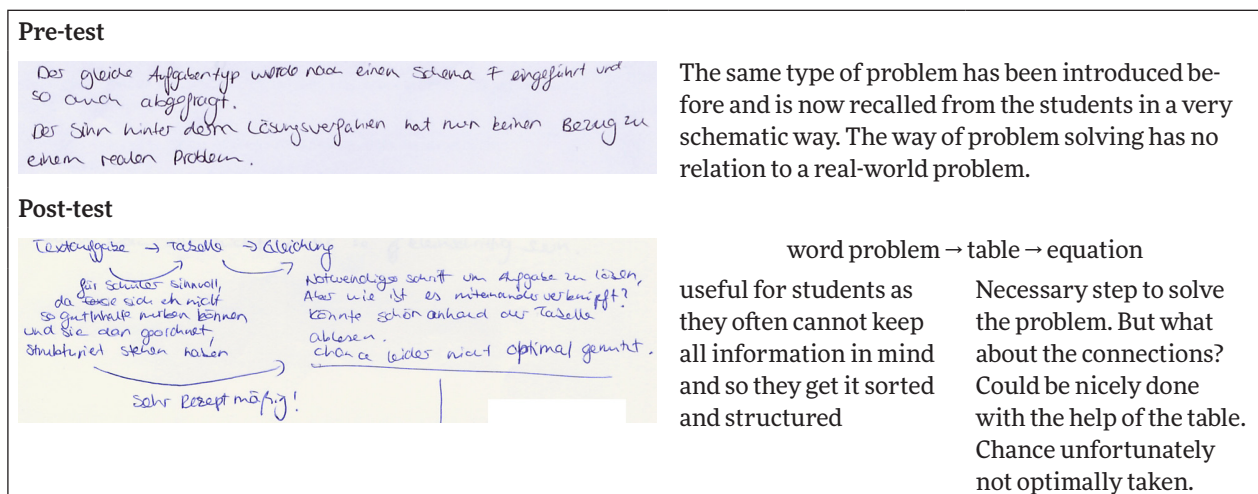 Pre-test
Der gleiche Aufgabentyp wurde nach einem Schema F eingeführt und
so auch abgefragt.
Der Sinn hinter dem Lösungsverfahren hat nun keinen Bezug zu
einem realen Problem.
The same type of problem has been introduced be-
fore and is now recalled from the students in a very
schematic way. The way of problem solving has no
relation to a real-world problem.
Post-test
Textaufgabe → Tabelle → Gleichung
für Schüler sinnvoll,
da sich eh nicht
so gut Inhalte merken können
und sie dan geordnet,
strukturiert stehen haben
Notwendiger Schritt um Aufgabe zu lösen,
Aber wie ist es miteinander verknüpft?
könnte schön anhand der Tabelle
ablesen.
Chance leider nicht optimal genutzt.
Sehr Rezeptmäßig!
word problem → table → equation
useful for students as
they often cannot keep
all information in mind
and so they get it sorted
and structured
Necessary step to solve
the problem. But what
about the connections?
Could be nicely done
with the help of the table.
Chance unfortunately
not optimally taken.